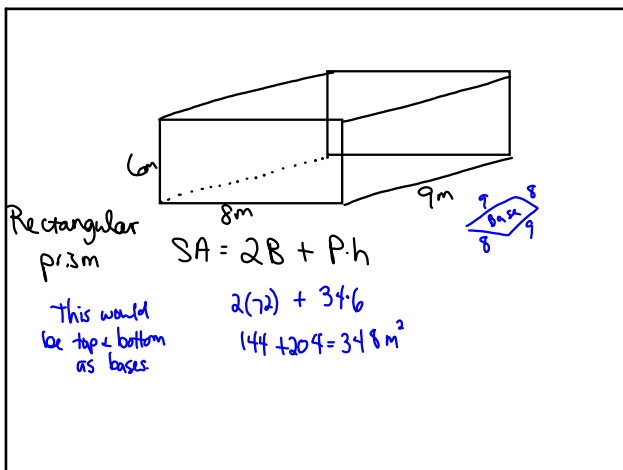 6m
8m
9m
9
8
Base
8
9
Rectangular
prism
SA = 2B + P·h
This would
be top & bottom
as bases.
2(72) + 34·6
144 + 204 = 348 m²